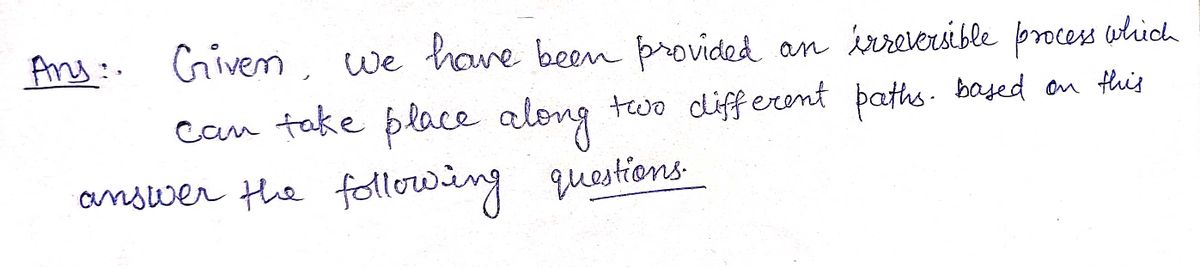 Ans :. Given, we have been provided an irreversible process which
can take place along two different paths. based on this
answer the following questions.